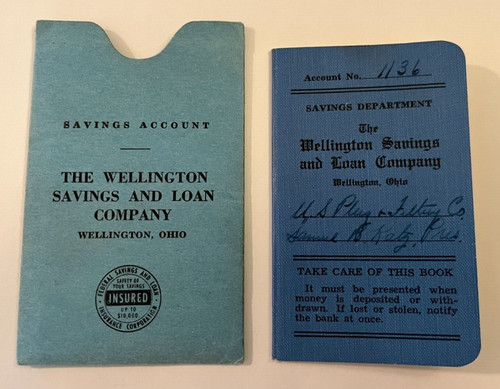 SAVINGS ACCOUNT
THE WELLINGTON
SAVINGS AND LOAN
COMPANY
WELLINGTON, OHIO
FEDERAL SAVINGS AND LOAN
INSURANCE CORPORATION
SAFETY OF
YOUR SAVINGS
INSURED
UP TO
$10,000
Account No. 1136
SAVINGS DEPARTMENT
The
Wellington Savings
and Loan Company
Wellington, Ohio
U S Plug & Fitting Co.
Samuel B Katz, Pres.
TAKE CARE OF THIS BOOK
It must be presented when
money is deposited or with-
drawn. If lost or stolen, notify
the bank at once.